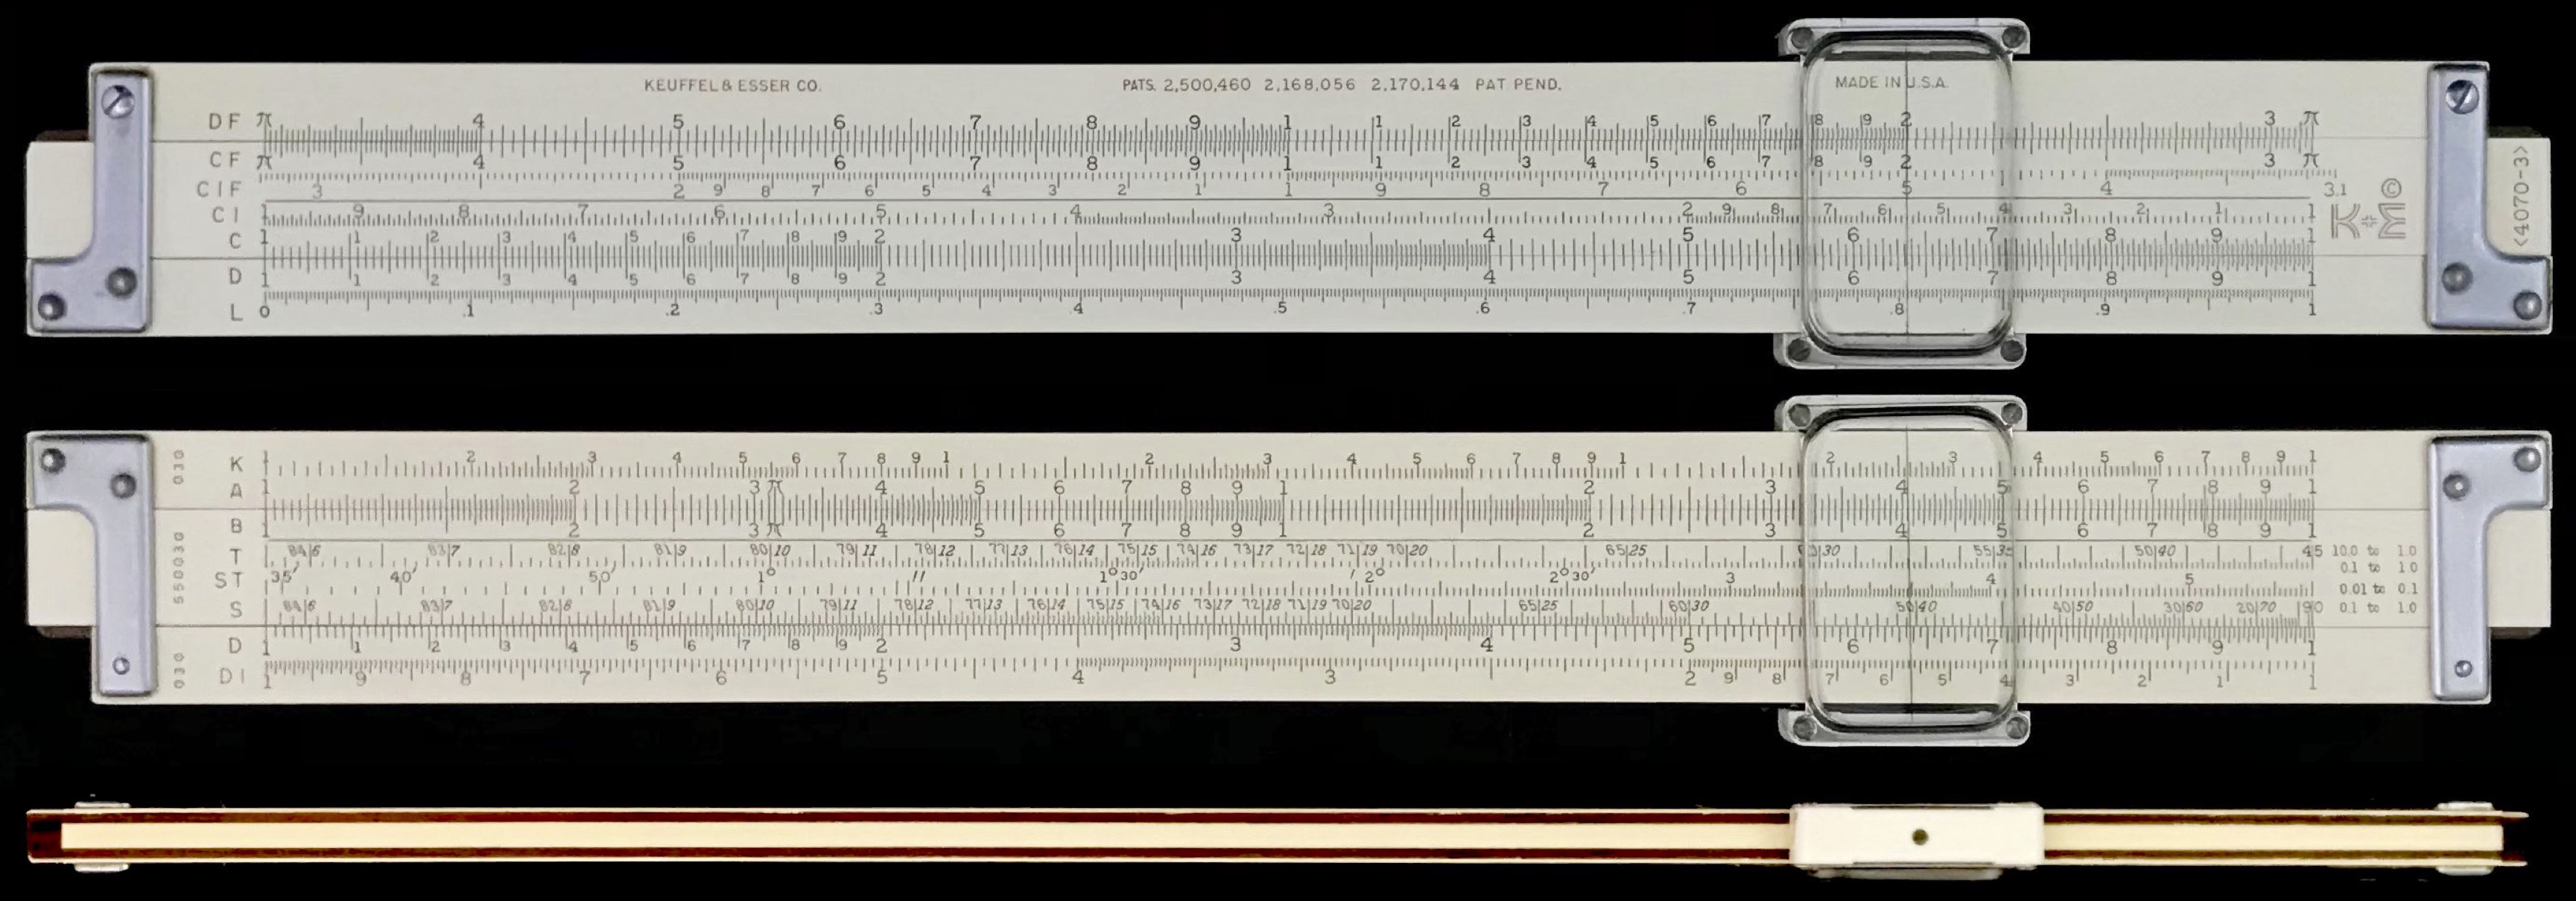 KEUFFEL & ESSER CO. PATS. 2,500,460 2,168,056 2,170,144 PAT. PEND. MADE IN U.S.A.
DF π 4 5 6 7 8 9 1 1 2 3 4 5 6 7 8 9 2 3 π
CF π 4 5 6 7 8 9 1 1 2 3 4 5 6 7 8 9 2 3 π
CIF 3 2 9 8 7 6 5 4 3 2 1 1 9 8 7 6 5 4 3.1
CI 1 9 8 7 6 5 4 3 2 9 8 7 6 5 4 3 2 1 1
C 1 1 2 3 4 5 6 7 8 9 2 3 4 5 6 7 8 9 1
D 1 1 2 3 4 5 6 7 8 9 2 3 4 5 6 7 8 9 1
L 0 .1 .2 .3 .4 .5 .6 .7 .8 .9 1
K+E ©
<4070-3>
030
K 1 2 3 4 5 6 7 8 9 1 2 3 4 5 6 7 8 9 1 2 3 4 5 6 7 8 9 1
A 1 2 3 π 4 5 6 7 8 9 1 2 3 4 5 6 7 8 9 1
550030
B 1 2 3 π 4 5 6 7 8 9 1 2 3 4 5 6 7 8 9 1
T 84|6 83|7 82|8 81|9 80|10 79|11 78|12 77|13 76|14 75|15 74|16 73|17 72|18 71|19 70|20 65|25 30 55|35 50|40 45 10.0 to 1.0
0.1 to 1.0
ST 35′ 40′ 50′ 1° 1°30′ 2° 2°30′ 3 4 5 0.01 to 0.1
S 84|6 83|7 82|8 81|9 80|10 79|11 78|12 77|13 76|14 75|15 74|16 73|17 72|18 71|19 70|20 65|25 60|30 50|40 40|50 30|60 20|70 90 0.1 to 1.0
030
D 1 1 2 3 4 5 6 7 8 9 2 3 4 5 6 7 8 9 1
DI 1 9 8 7 6 5 4 3 2 9 8 7 6 5 4 3 2 1 1